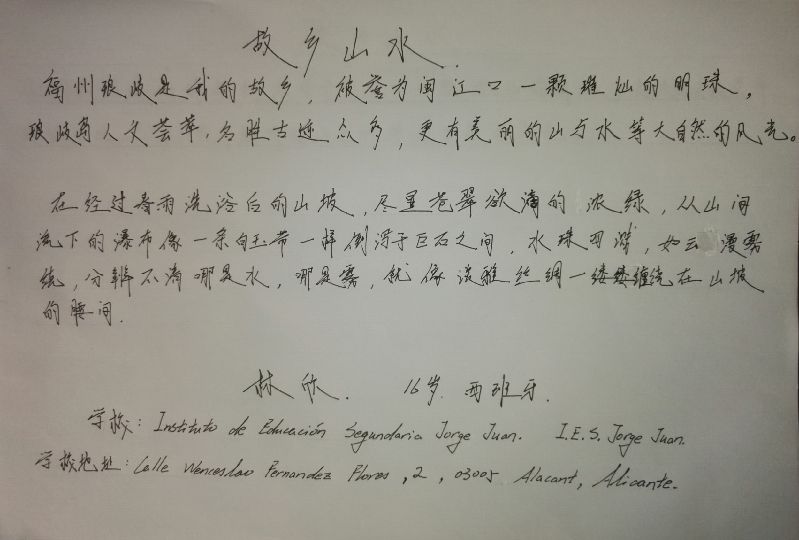 故乡山水.
福州琅岐是我的故乡，被誉为闽江口一颗璀灿的明珠，
琅岐岛人文荟萃，名胜古迹众多，更有美丽的山与水等大自然的风光。
在经过春雨洗浴后的山坡，尽显苍翠欲滴的浓绿，从山间
流下的瀑布像一条白玉带一样倒泻于巨石之间，水珠四溅，如云漫雾
绕，分辨不清哪是水，哪是雾，就像淡雅丝绸一缕缕缠绕在山坡
的腰间.
林欣. 16岁. 西班牙.
学校: Instituto de Educación Segundaria Jorge Juan. I.E.S. Jorge Juan.
学校地址: Calle Wenceslao Fernandez Flores, 2, 03005 Alacant, Alicante.